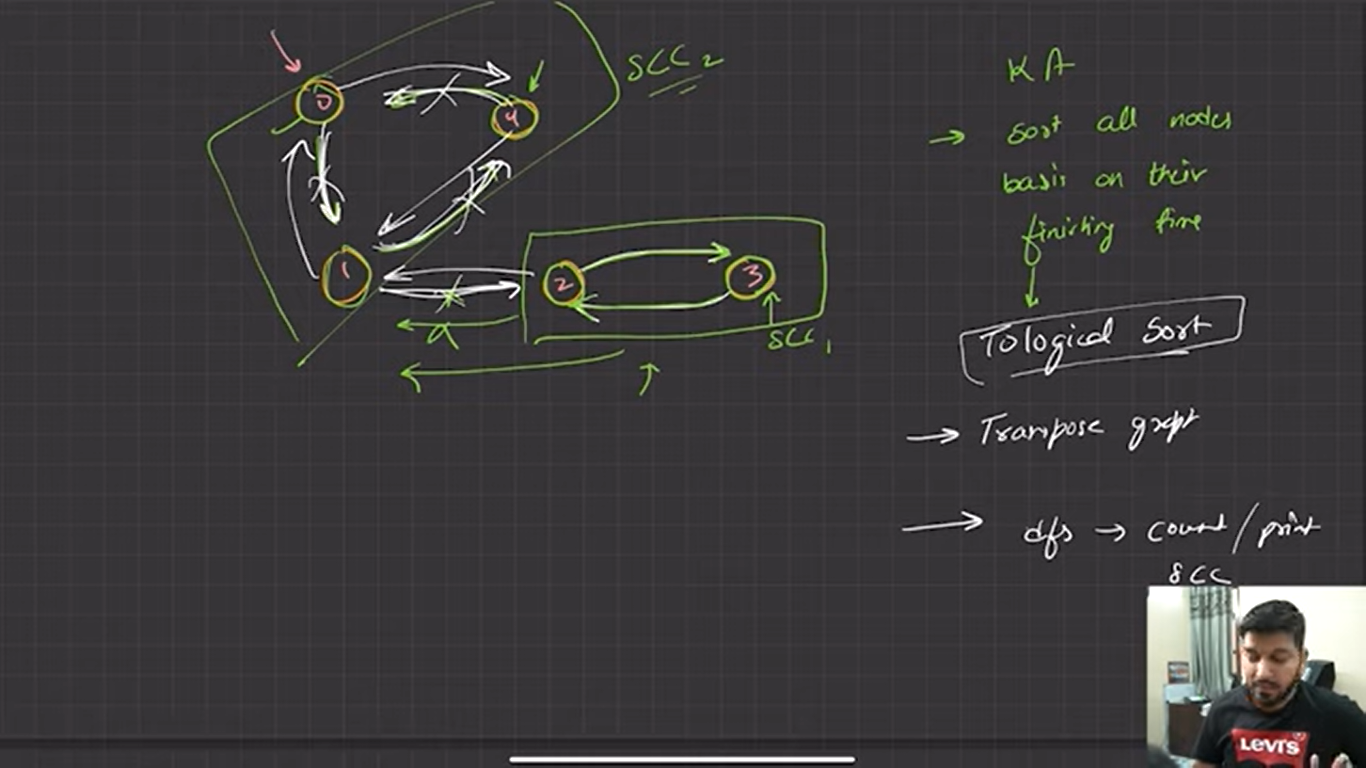 SCC2
0
4
1
2
3
a
SCC1
KA
→ Sort all nodes
basis on their
finishing time
Tological Sort
→ Transpose graph
→ dfs → count/print
SCC
LEVI'S